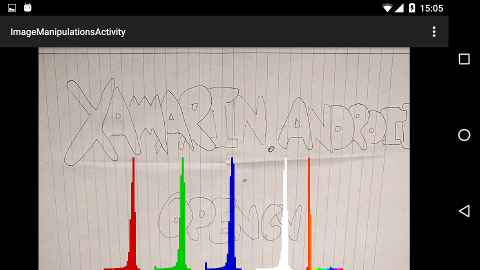 15:05
ImageManipulationsActivity
XAMARIN.ANDROID
OPENCV